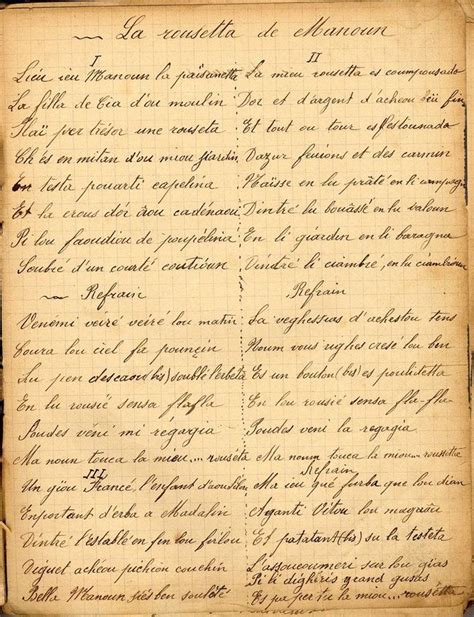 La rousetta de Manoun
I
Lieu ieu Manoun la païsanetta
La filla de Tia d'ou moulin
Haï per trésor une rouseta
Ch'es en mitan d'ou miou giardin
En testa pouarti capelina
Et la crous d'or àou cadénaou
Pi lou faoudiou de poupélina
Soubre d'un courté coutioun
Refrain
Venémi veiré veiré lou matin
Coura lou ciel fa pouncin
Au pen descaou (bis) soublé l'erbeta
En lu rousié sensa flafla
Poudes véni mi regagia
Ma noun touca la miou... rouseta
III
Un giou Francé, l'enfant d'aoudilou
Emportant d'erba a Madalin
Dintré l'estable en fin lou firlou
Viguet achéou pichioun couchin
Bella Manoun siés ben soulété
II
La miou rousetta es coumpousado
D'or et d'argent d'achéou bèu fin
Et tout ou tour es festounada
D'azur feuions et des carmin
Naïsse en lu prâté en li campagna
Dintré lu bouàssé en lu valoun
En li giarden en li baragna
Dintré li ciambré, en lu ciambroun
Refrain
La veghessias d'achestou tens
Noum vous rughes cresé lou ben
Es un bouton (bis) es poulidetta
En lou rousié sensa fla-fla
Poudes veni la regagia
Ma noun touca la miou rousetta
Refrain
Ma ieu qué furba que lou dian
Aganti Vitou lou magraou
Et patatant (bis) su la testeta
L'assoucoumeri su lou gias
Pi li dighéris grand gusas
Es pa per tu la miou... rousetta